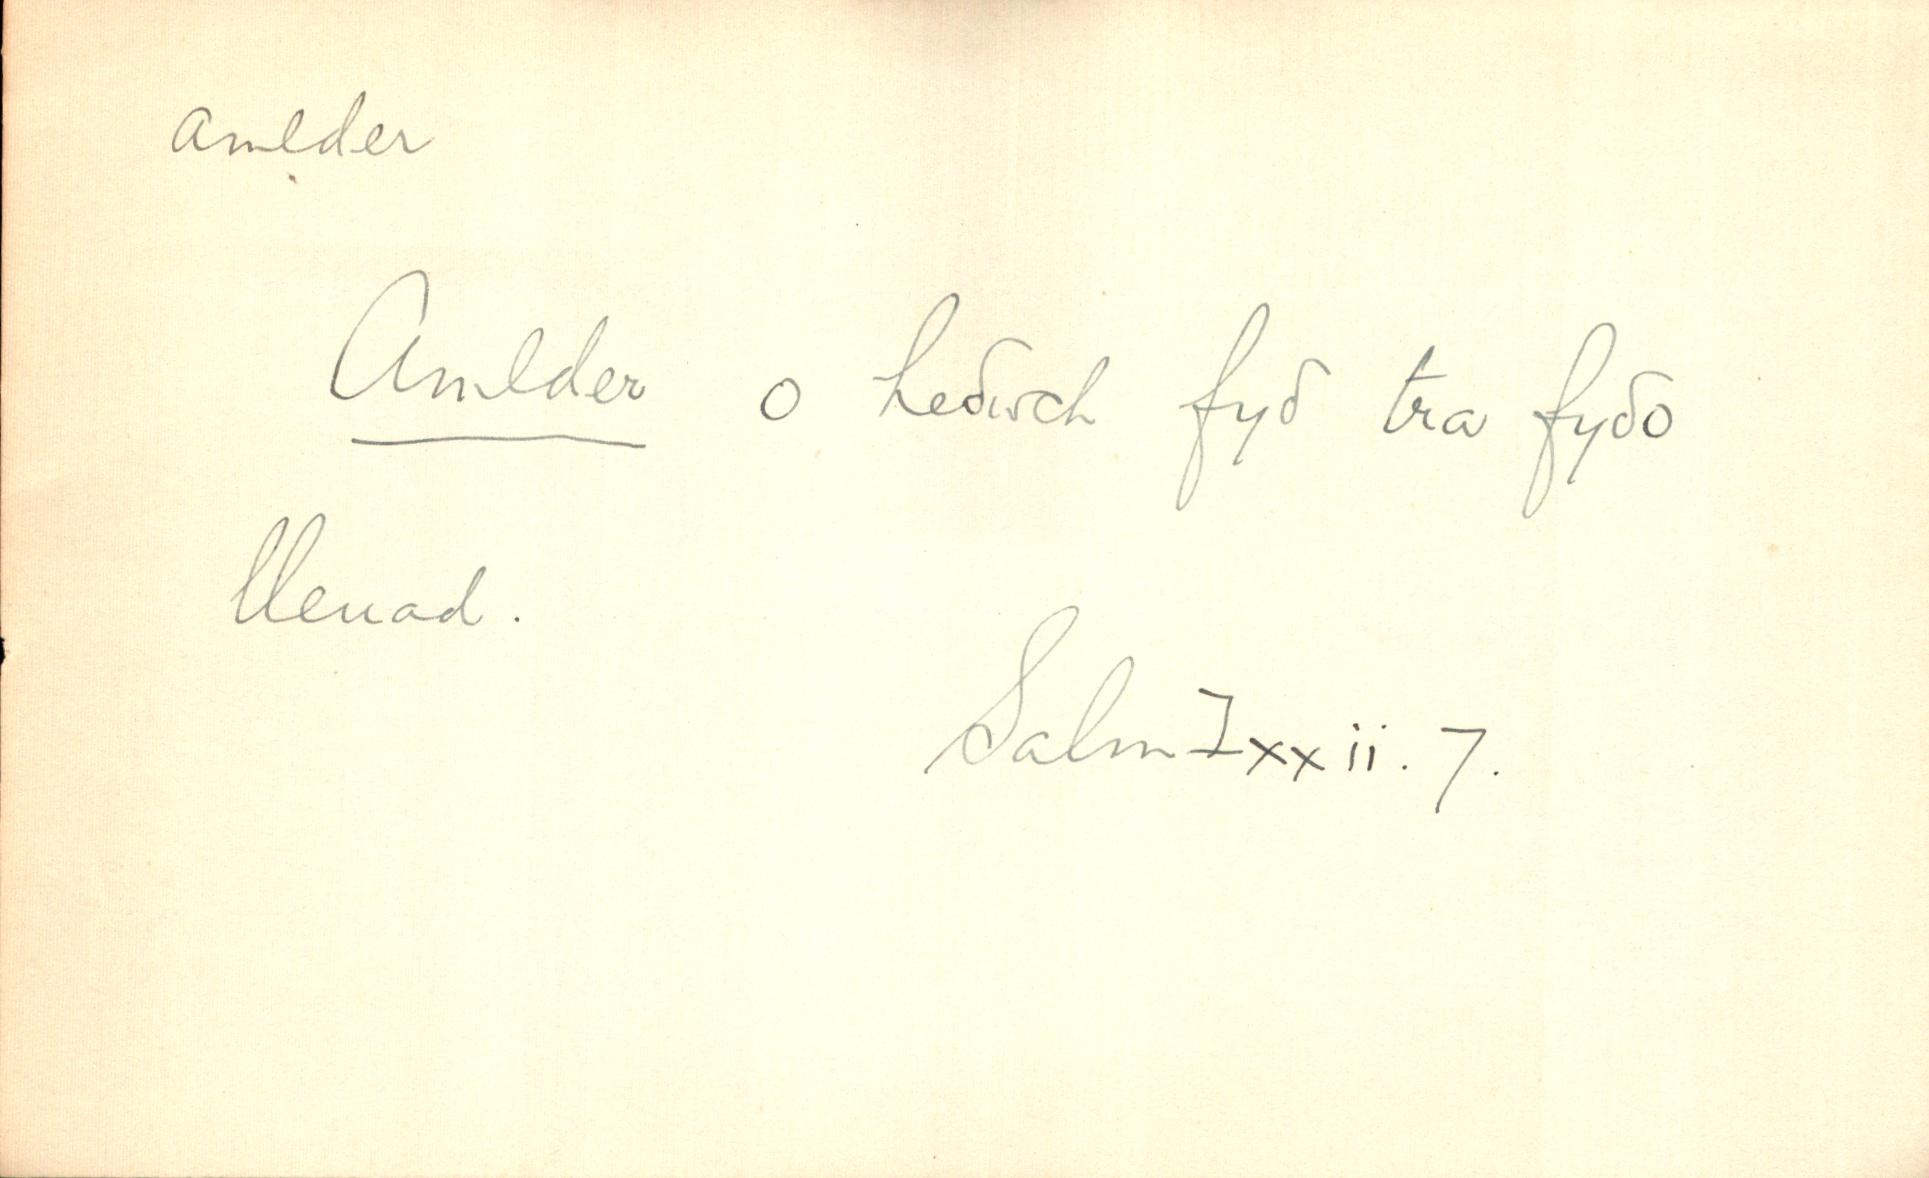 amlder
Amlder o heδwch fyδ tra fyδo
lleuad.
Salm lxxii. 7.